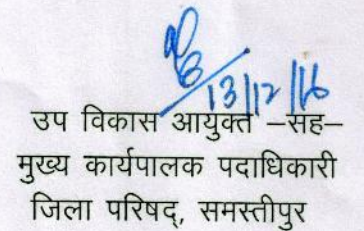 13/12/16
उप विकास आयुक्त –सह–
मुख्य कार्यपालक पदाधिकारी
जिला परिषद्, समस्तीपुर